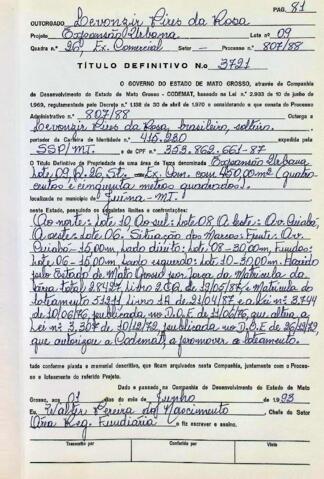 PAG. 81
OUTORGADO Devonzir Pires da Rosa
Projeto Expansão Urbana Lote 09
Quadra n.º 26, Ex. Comercial — Setor — Processo n.º 807/88
TÍTULO DEFINITIVO N.o 3721
O GOVERNO DO ESTADO DE MATO GROSSO, através de Companhia
de Desenvolvimento do Estado de Mato Grosso - CODEMAT, baseado na Lei n.º 2.903 de 10 de junho de
1969, regulamentada pelo Decreto n.º 1.138 de 30 de abril de 1970 e considerando o que consta do Processo
Administrativo n.º 807/88 outorga a
Devonzir Pires da Rosa, brasileiro, solteiro.
portador da Carteira de Identidade n.º 415.230 expedida pela
SSP/MT. e de CPF n.º 353.862.661-87
O Título Definitivo de Propriedade de uma área de Terra denominada Expansão Urbana
Lote 09, Q. 26, Ex. Com. com 450,00m² (quatro
centos e cinquenta metros quadrados).
localizada no município de Juína - MT.
neste Estado, possuindo os seguintes limites e confrontações:
Ao norte: Lote 10. Ao sul: Lote 08. A leste: Av. Cuiabá,
A oeste: Lote 06. Situação dos Marcos: Frente: Av.
Cuiabá - 15,00m, Lado direito: Lote 08 - 30,00m, Fundos:
Lote 06 - 15,00m. Lado esquerdo: Lote 10 - 30,00m. Havido
pelo Estado de Mato Grosso por força da Matrícula da
área total 28427, Livro 2 de 19/05/87 e Matrícula do
loteamento 51211 Livro 1A de 21/04/87 e a Lei n.º 3744
de 10/06/76, publicada no D.O.E de 11/06/76, que altera a
Lei n.º 3.307 de 10/12/72, publicada no D.O.E de 26/12/72,
que autorizou a Codemat, a promover o loteamento.
tudo conforme planta e memorial descritivo, que ficam arquivados nesta Companhia, juntamente com o Proces-
so e loteamento do referido Projeto.
Dado e passado na Companhia de Desenvolvimento do Estado de Mato
Grosso, aos 01 dias do mês de Junho de 1993
Eu, Walter Pereira do Nascimento Chefe do Setor
Área Reg. Fundiária o fiz escrever e assino.
Transcrito por Conferido por Visto